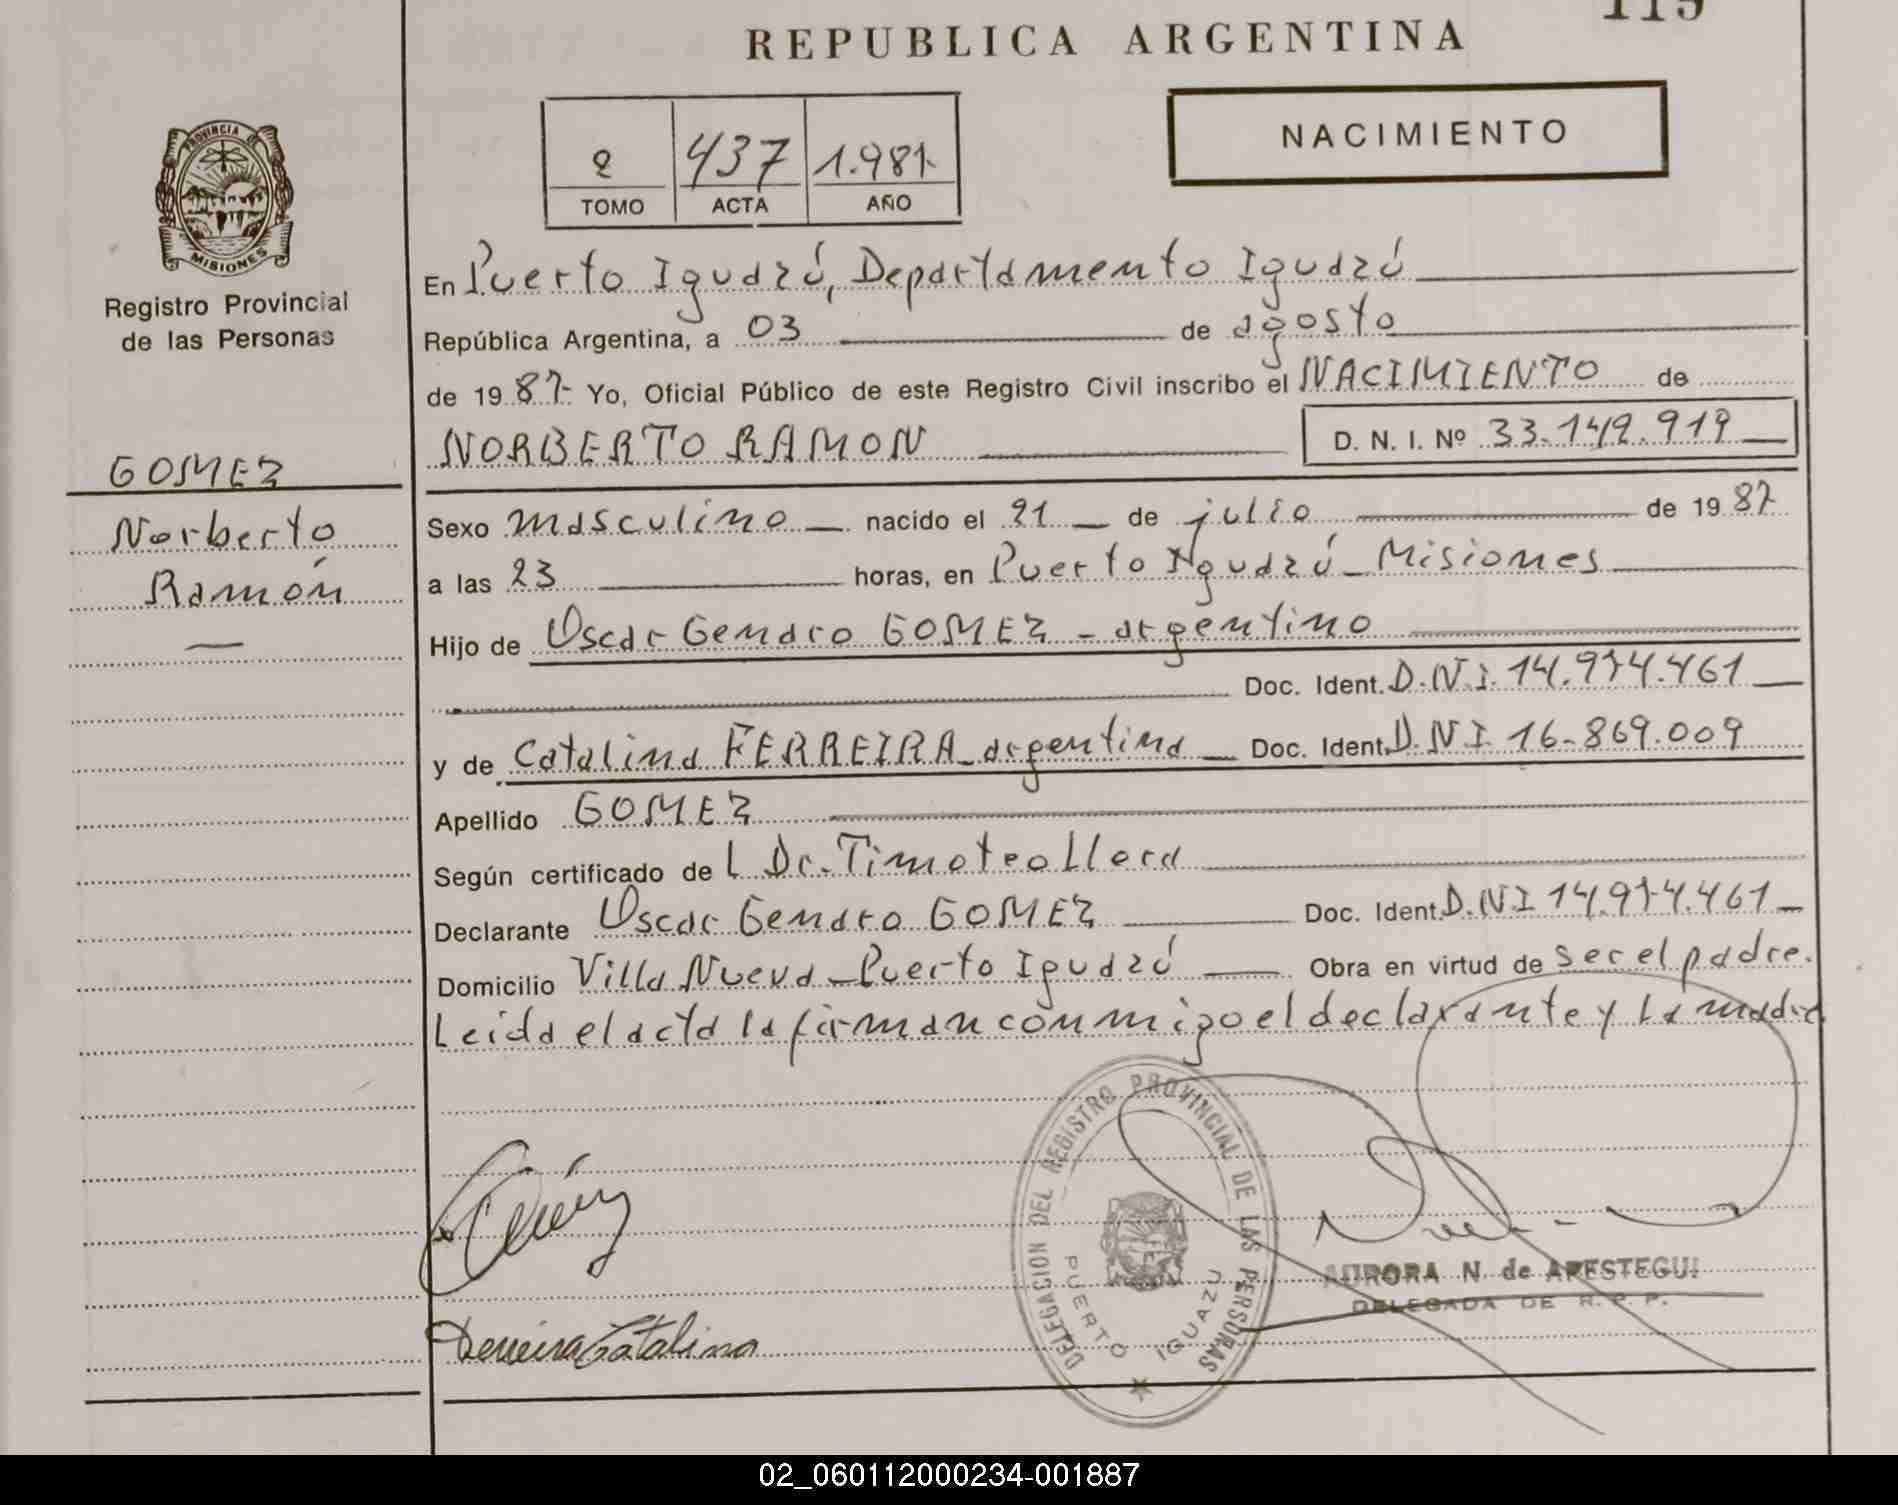 119
REPUBLICA ARGENTINA
NACIMIENTO
2 437 1.987-
TOMO ACTA AÑO
PROVINCIA DE
MISIONES
Registro Provincial
de las Personas
GOMEZ
Norberto
Ramón
En Puerto Iguazú, Departamento Iguazú
República Argentina, a 03 de agosto
de 1987- Yo, Oficial Público de este Registro Civil inscribo el NACIMIENTO de
NORBERTO RAMON D. N. I. Nº 33.149.919
Sexo masculino nacido el 21 de julio de 1987
a las 23 horas, en Puerto Iguazú - Misiones
Hijo de Oscar Genaro GOMEZ - argentino
Doc. Ident. D.N.I. 14.974.461
y de Catalina FERREIRA - argentina Doc. Ident. D.N.I. 16.869.009
Apellido GOMEZ
Según certificado de L Dr. Timoteo Llera
Declarante Oscar Genaro GOMEZ Doc. Ident. D.N.I 14.974.461
Domicilio Villa Nueva - Puerto Iguazú Obra en virtud de ser el padre.
Leida el acta la firman conmigo el declarante y la madre
DELEGACION DEL REGISTRO PROVINCIAL DE LAS PERSONAS
PUERTO IGUAZU
AURORA N. de APESTEGUI
DELEGADA DE R. P. P.
Ferreira Catalina
02_060112000234-001887